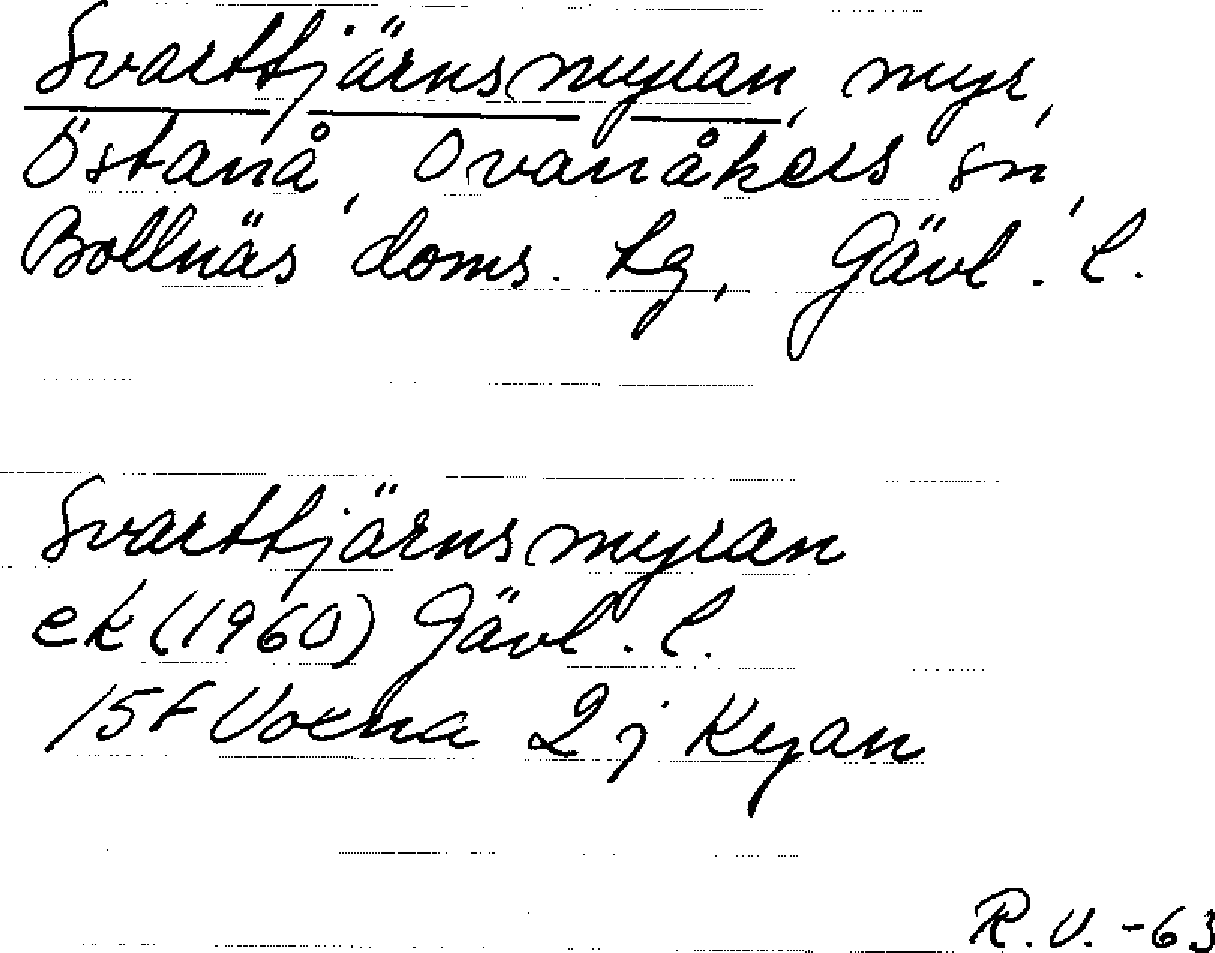 Svarttjärnsmyran, myr,
Östanå, Ovanåkers sn,
Bollnäs doms. tg, Gävl. l.
Svarttjärnsmyran
ek (1960) Gävl. l.
15F Voxna 2j Kyan
R.V. -63